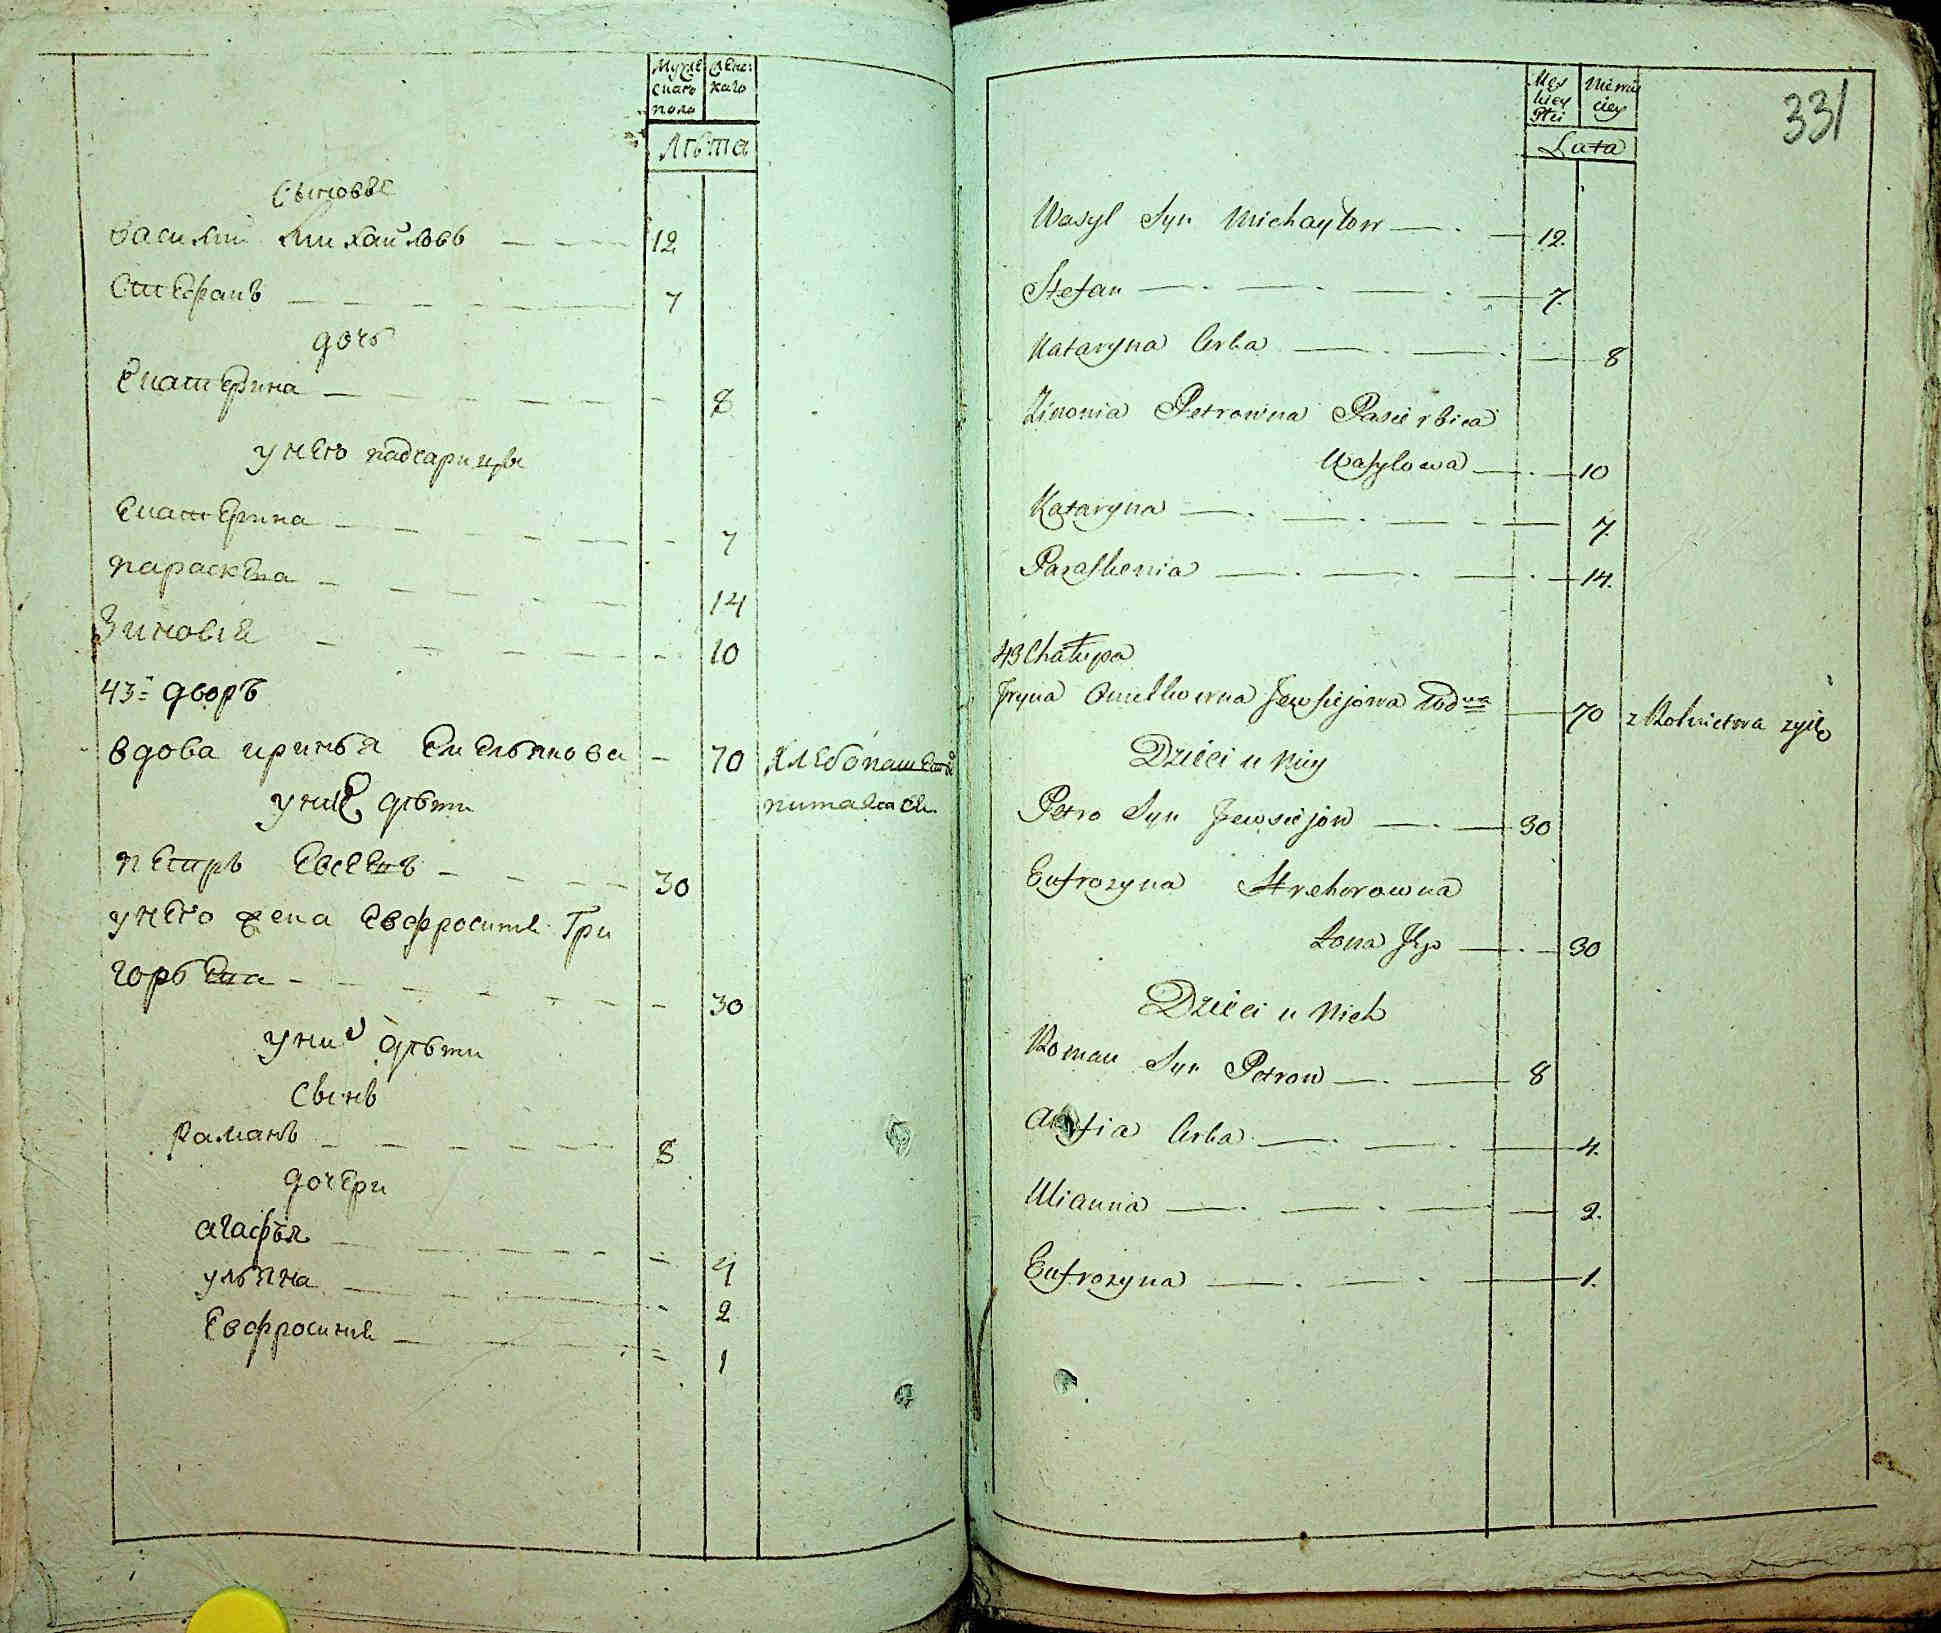 Мужескаго пола
Женскаго
Лѣта
Сыновье
Василий Михайловъ 12
Стефанъ 7
дочь
Екатерина 8
у него падчарицы
Екатерина 7
параскева 14
Зиновія 10
43й дворъ
вдова иринья Емельянова 70 хлебопашество
питается
у ние дѣти
петръ Евсеевъ 30
у него жена Евфросиния Гри
горьева 30
у них дѣти
Сынъ
Раманъ 8
дочери
агафья 4
ульяна 2
Евфросиния 1
331
Męs
kiey
Płci
Niewie
ciey
Lata
Wasyl Syn Michayłow 12
Stefan 7
Kataryna Crka 8
Zinowia Petrowna Pasierbica
Wasylowa 10
Kataryna 7
Paraskewia 14
43 Chałupa
Jryna Omelkowna Jewsiejowa Wdwa 70 z Rolnictwa żyje
Dzieci u Niey
Petro Syn Jewsiejow 30
Eufrozyna Hrehorowna
Żona Jego 30
Dzieci u Nich
Roman Syn Petrow 8
Crka 4
Ulianna 2
Eufrozyna 1